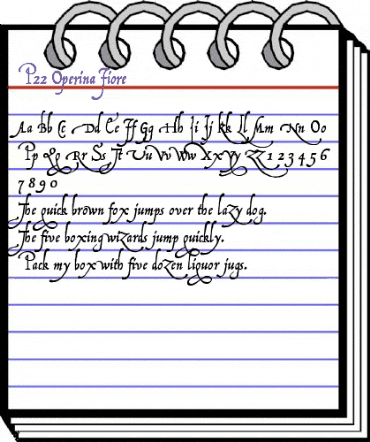 P22 Operina Fiore
Aa Bb Cc Dd Ee Ff Gg Hh Ii Jj Kk Ll Mm Nn Oo
Pp Qq Rr Ss Tt Uu Vv Ww Xx Yy Zz 1 2 3 4 5 6
7 8 9 0
The quick brown fox jumps over the lazy dog.
The five boxing wizards jump quickly.
Pack my box with five dozen liquor jugs.